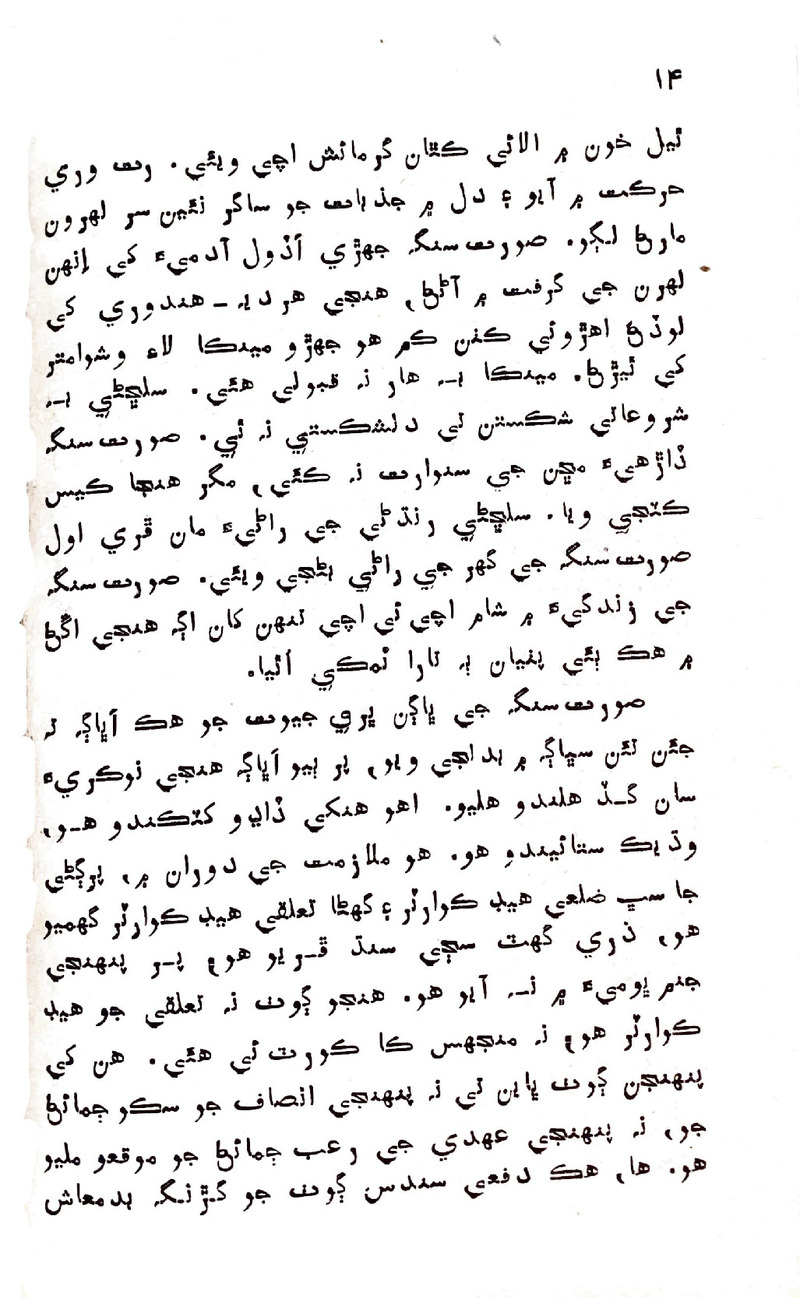 ۱۴
ٿيل خون ۾ الائي ڪٿان گرمائش اچي ويئي. رت وري
حرڪت ۾ آيو ۽ دل ۾ جذبات جو ساگر نئين سر لهرون
مارڻ لڳو. صورت سنگهه جهڙي اڏول آدميءَ کي انهن
لهرن جي گرفت ۾ آڻڻ، هنجي هردي ـ هندوري کي
لوڏڻ اهڙوئي ڪٺن ڪم هو جهڙو مينڪا لاءِ وشوامتر
کي ٿيڙڻ. مينڪا به هار نه قبولي هئي. سلڇڻي به
شروعاتي شڪستن تي دلشڪستي نه ٿي. صورت سنگهه
ڏاڙهيءَ مڇن جي سنوارت نه ڪئي، مگر هنجا ڪيس
ڪٽجي ويا. سلڇڻي رنڌڻي جي راڻيءَ مان ڦري اول
صورت سنگهه جي گهر جي راڻي بڻجي ويئي. صورت سنگهه
جي زندگيءَ ۾ شام اچي ئي اچي تنهن کان اڳ هنجي اڱڻ
۾ هڪ ٻئي پٺيان ٻه تارا ٽمڪي اٿيا.
صورت سنگهه جي ڀاڳن ڀري جيوت جو هڪ اڀاڳ ته
جئن تئن سڀاڳ ۾ بدلجي ويو، پر ٻيو اڀاڳ هنجي نوڪريءَ
سان گڏ هلندو هليو. اهو هنکي ڏاڍو کٽڪندو هو،
وڌيڪ ستائيندو هو. هو ملازمت جي دوران ۾، پرڳڻي
جا سڀ ضلعي هيڊ ڪوارٽر ۽ گهڻا تعلقي هيڊ ڪوارٽر گهميو
هو، ذري گهٽ سڄي سنڌ ڦريو هو، پر پنهنجي
جنم ڀوميءَ ۾ نه آيو هو. هنجو ڳوٺ نه تعلقي جو هيڊ
ڪوارٽر هو، نه منجهس ڪا ڪورٽ ئي هئي. هن کي
پنهنجن ڳوٺ ڀاين تي نه پنهنجي انصاف جو سڪو ڄمائڻ
جو، نه پنهنجي عهدي جي رعب ڄمائڻ جو موقعو مليو
هو. ها، هڪ دفعي سندس ڳوٺ جو ڪڙنگهه بدمعاش